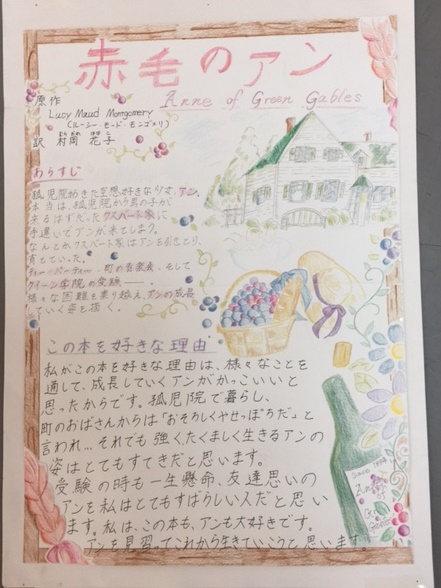 赤毛のアン
Anne of Green Gables
原作
Lucy Maud Montgomery
(ルーシー モード モンゴメリ)
訳 村岡 花子
あらすじ
孤児院から来た空想好きな少女、アン。
本当は、孤児院から男の子が
来るはずだったクスバート家に
手違いでアンが来てしまう。
なんとかクスバート家はアンを引きとり、
育てていった。
ティーパーティー、町の音楽会、そして
クイーン学院の受験――。
様々な困難を乗り越え、アンの成長
していく姿を描く。
この本を好きな理由
私がこの本を好きな理由は、様々なことを
通して、成長していくアンがかっこいいと
思ったからです。孤児院で暮らし、
町のおばさんからは「おそろしくやせっぽちだ」と
言われ…それでも強くたくましく生きるアンの
姿はとてもすてきだと思います。
受験の時も一生懸命、友達思いの
アンを私はとてもすばらしい人だと思い
ます。私は、この本も、アンも大好きです。
アンを見習ってこれから生きていこうと思います。